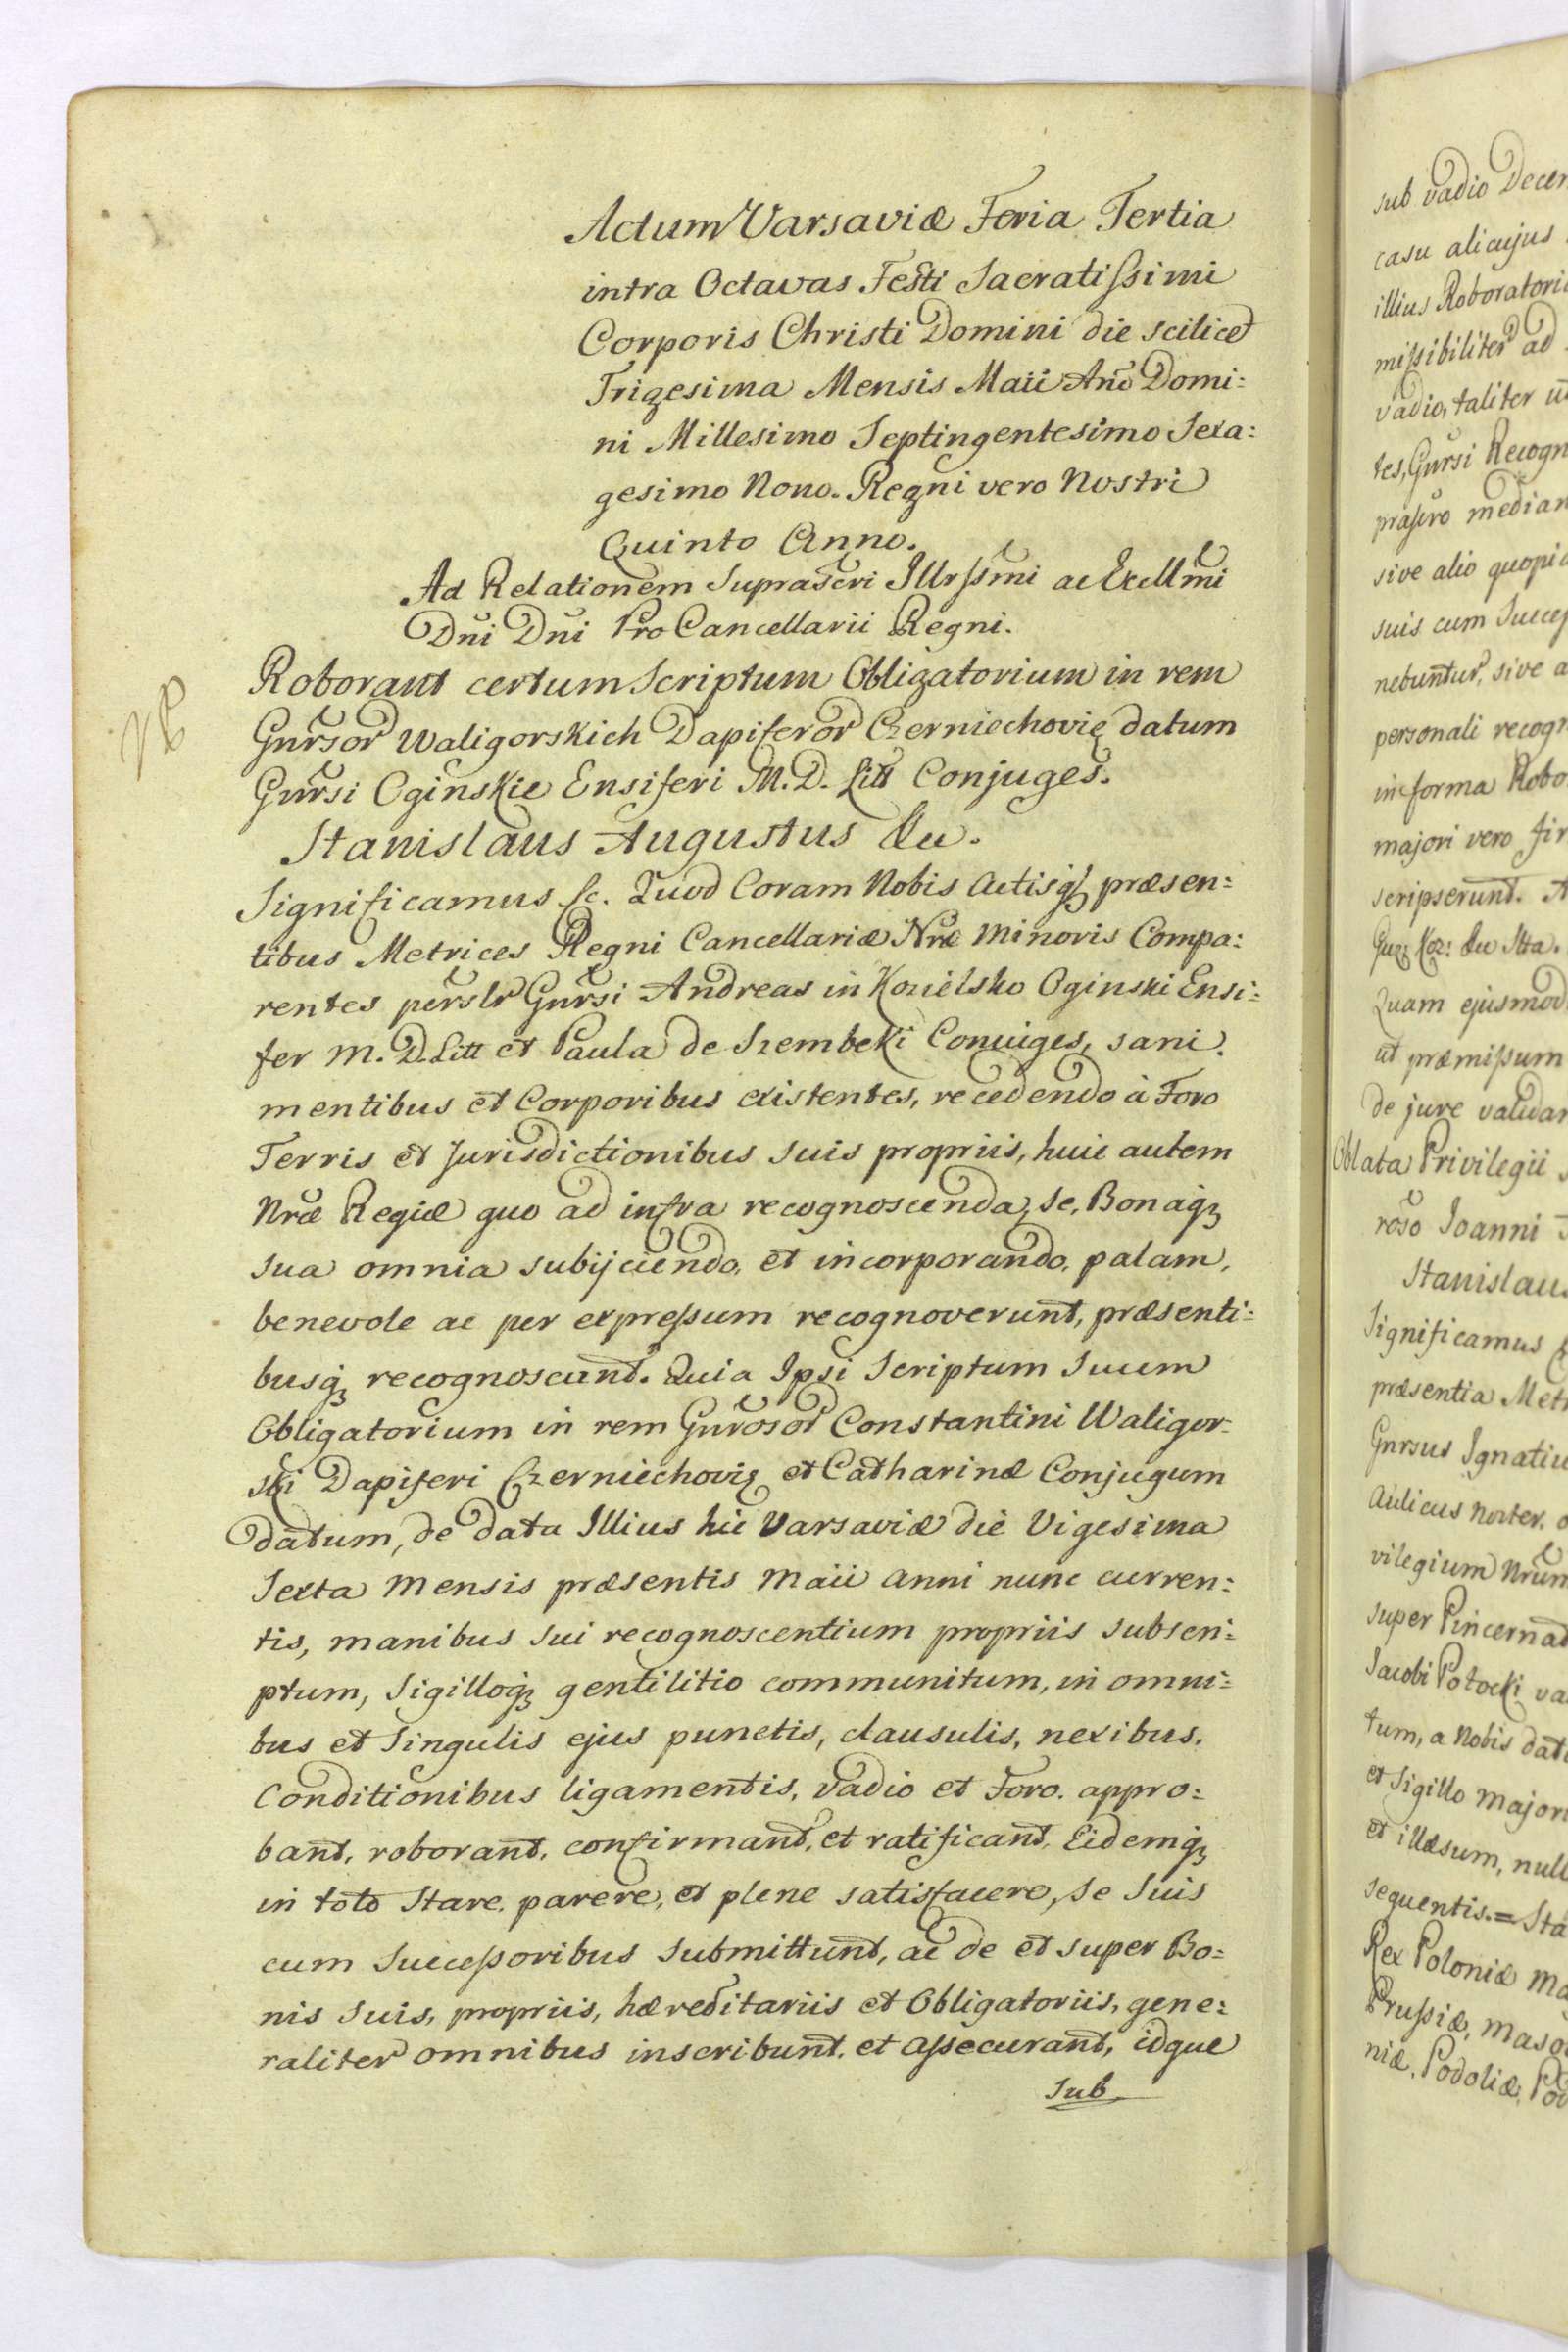 Actum Varsaviæ Feria Tertia
intra Octavas Festi Sacratissimi
Corporis Christi Domini die scilicet
Trigesima Mensis Maii Año Domi:
ni Millesimo Septingentesimo Sexa:
gesimo Nono. Regni vero Nostri
Quinto Anno.
Ad Relationem Suprascri Illrssmi ac Excllmi
Dni Dni Pro Cancellarii Regni.
Roborant certum Scriptum Obligatorium in rem
Gnrsor Waligorskich Dapiferor Czerniechovię datum
Gnrsi Oginskie Ensiferi M. D. Litt Conjuges.
Stanislaus Augustus &c.
Significamus &c. Quod Coram Nobis Actisq̃ præsen:
tibus Metrices Regni Cancellariæ Nræ Minoris Compa:
rentes perslr Gnrsi Andreas in Kozielsko Oginski Ensi:
fer M. D. Litt et Paula de Szembeki Coniuges, sani
mentibus et Corporibus existentes, recedendo à Foro
Terris et Jurisdictionibus suis propriis, huic autem
Nræ Regiæ quo ad infra recognoscenda, se, Bonaq̃
sua omnia subijciendo, et incorporando, palam,
benevole ac per expressum recognoverunt, præsenti:
busq̃ recognoscunt. Quia Ipsi Scriptum Suum
Obligatorium in rem Gnrosor Constantini Waligor:
ski Dapiferi Czerniechovię et Catharinæ Conjugum
datum, de data Illius hic Varsaviæ die Vigesima
Sexta Mensis præsentis Maii anni nunc curren:
tis, manibus sui recognoscentium propriis subscri:
ptum, Sigilloq̃ gentilitio communitum, in omni:
bus et Singulis ejus punctis, clausulis, nexibus,
Conditionibus ligamentis, vadio et Foro. appro:
bant, roborant, confirmant, et ratificant, Eidemq̃
in toto Stare, parere, et plene satisfacere, se Suis
cum Successoribus submittunt, ac de et super Bo:
nis Suis, propriis, hæreditariis et Obligatoriis, gene:
raliter omnibus inscribunt, et assecurant, idque
Sub
sub vadio Decem
casu alicujus
illius Roboratori
missibiliter ad
vadio, taliter
tes, Gnrsi Recogn
prascro median
sive alio quopi
suis cum Succes
nebuntur, sive a
personali recogn
in forma Robo
majori vero fir
scripserunt. A
Quam ejusmod
ut præmissum
de jure validar
Oblata Privilegii
roso Ioanni
Stanislaus
Significamus
præsentia Metr
Gnrsus Ignatiu
Aulicus noster,
vilegium Nrum
super Pincernat
Jacobi Potocki va
tum, a Nobis dat
et Sigillo majori
et illæsum, null
sequentis. = Sta
Rex Poloniæ Ma
Prussiæ, Maso
niæ, Podoliæ, Pod